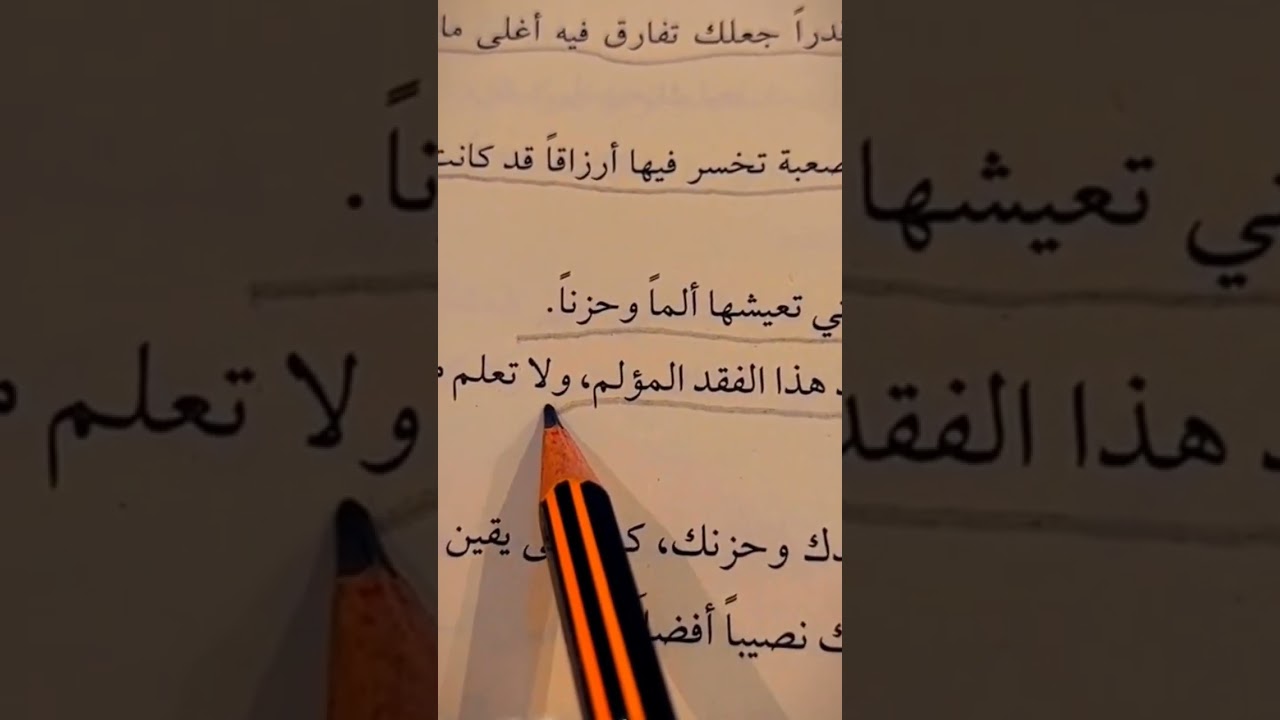 قدراً جعلك تفارق فيه أغلى ما
صعبة تخسر فيها أرزاقاً قد كانت
تعيشها ألماً وحزناً.
هذا الفقد المؤلم، ولا تعلم
وحزنك، يقين
نصيباً